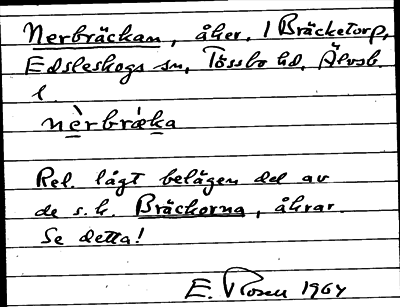 Nerbräckan, åker, 1 Bräcketorp,
Edsleskogs sn, Tössbo hd, Älvsb.
l.
nèrbráka
Rel. lågt belägen del av
de s.k. Bräckorna, åkrar.
Se detta!
E. Rosen 1964